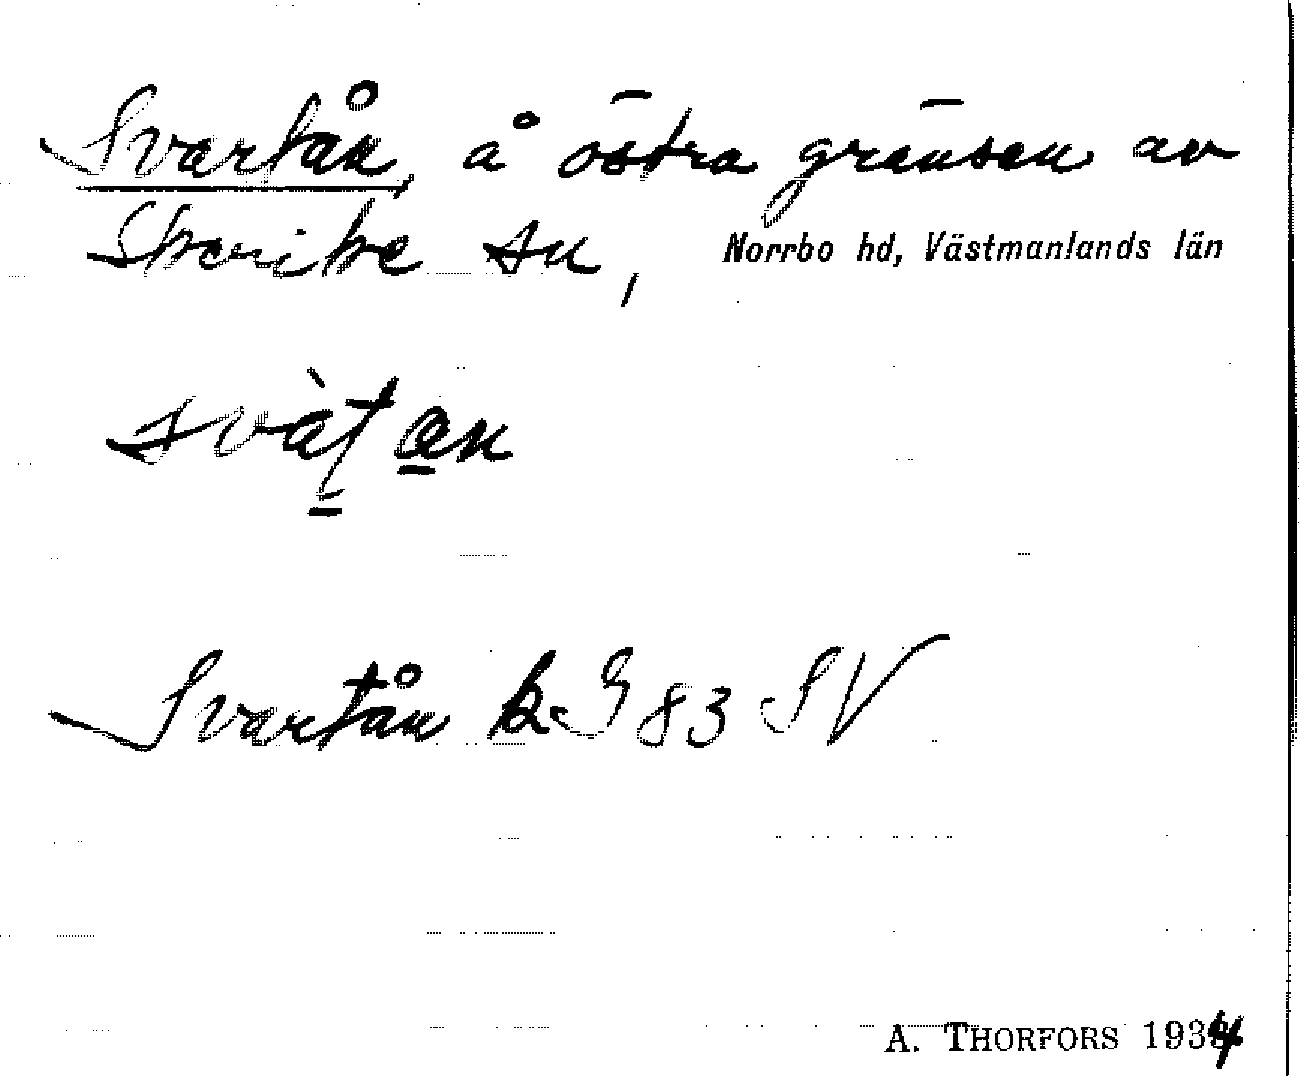 Svartån, å östra gränsen av
Skerike sn, Norrbo hd, Västmanlands län
svàt̠a̠n
Svartån k. G 83 SV
A. THORFORS 1934